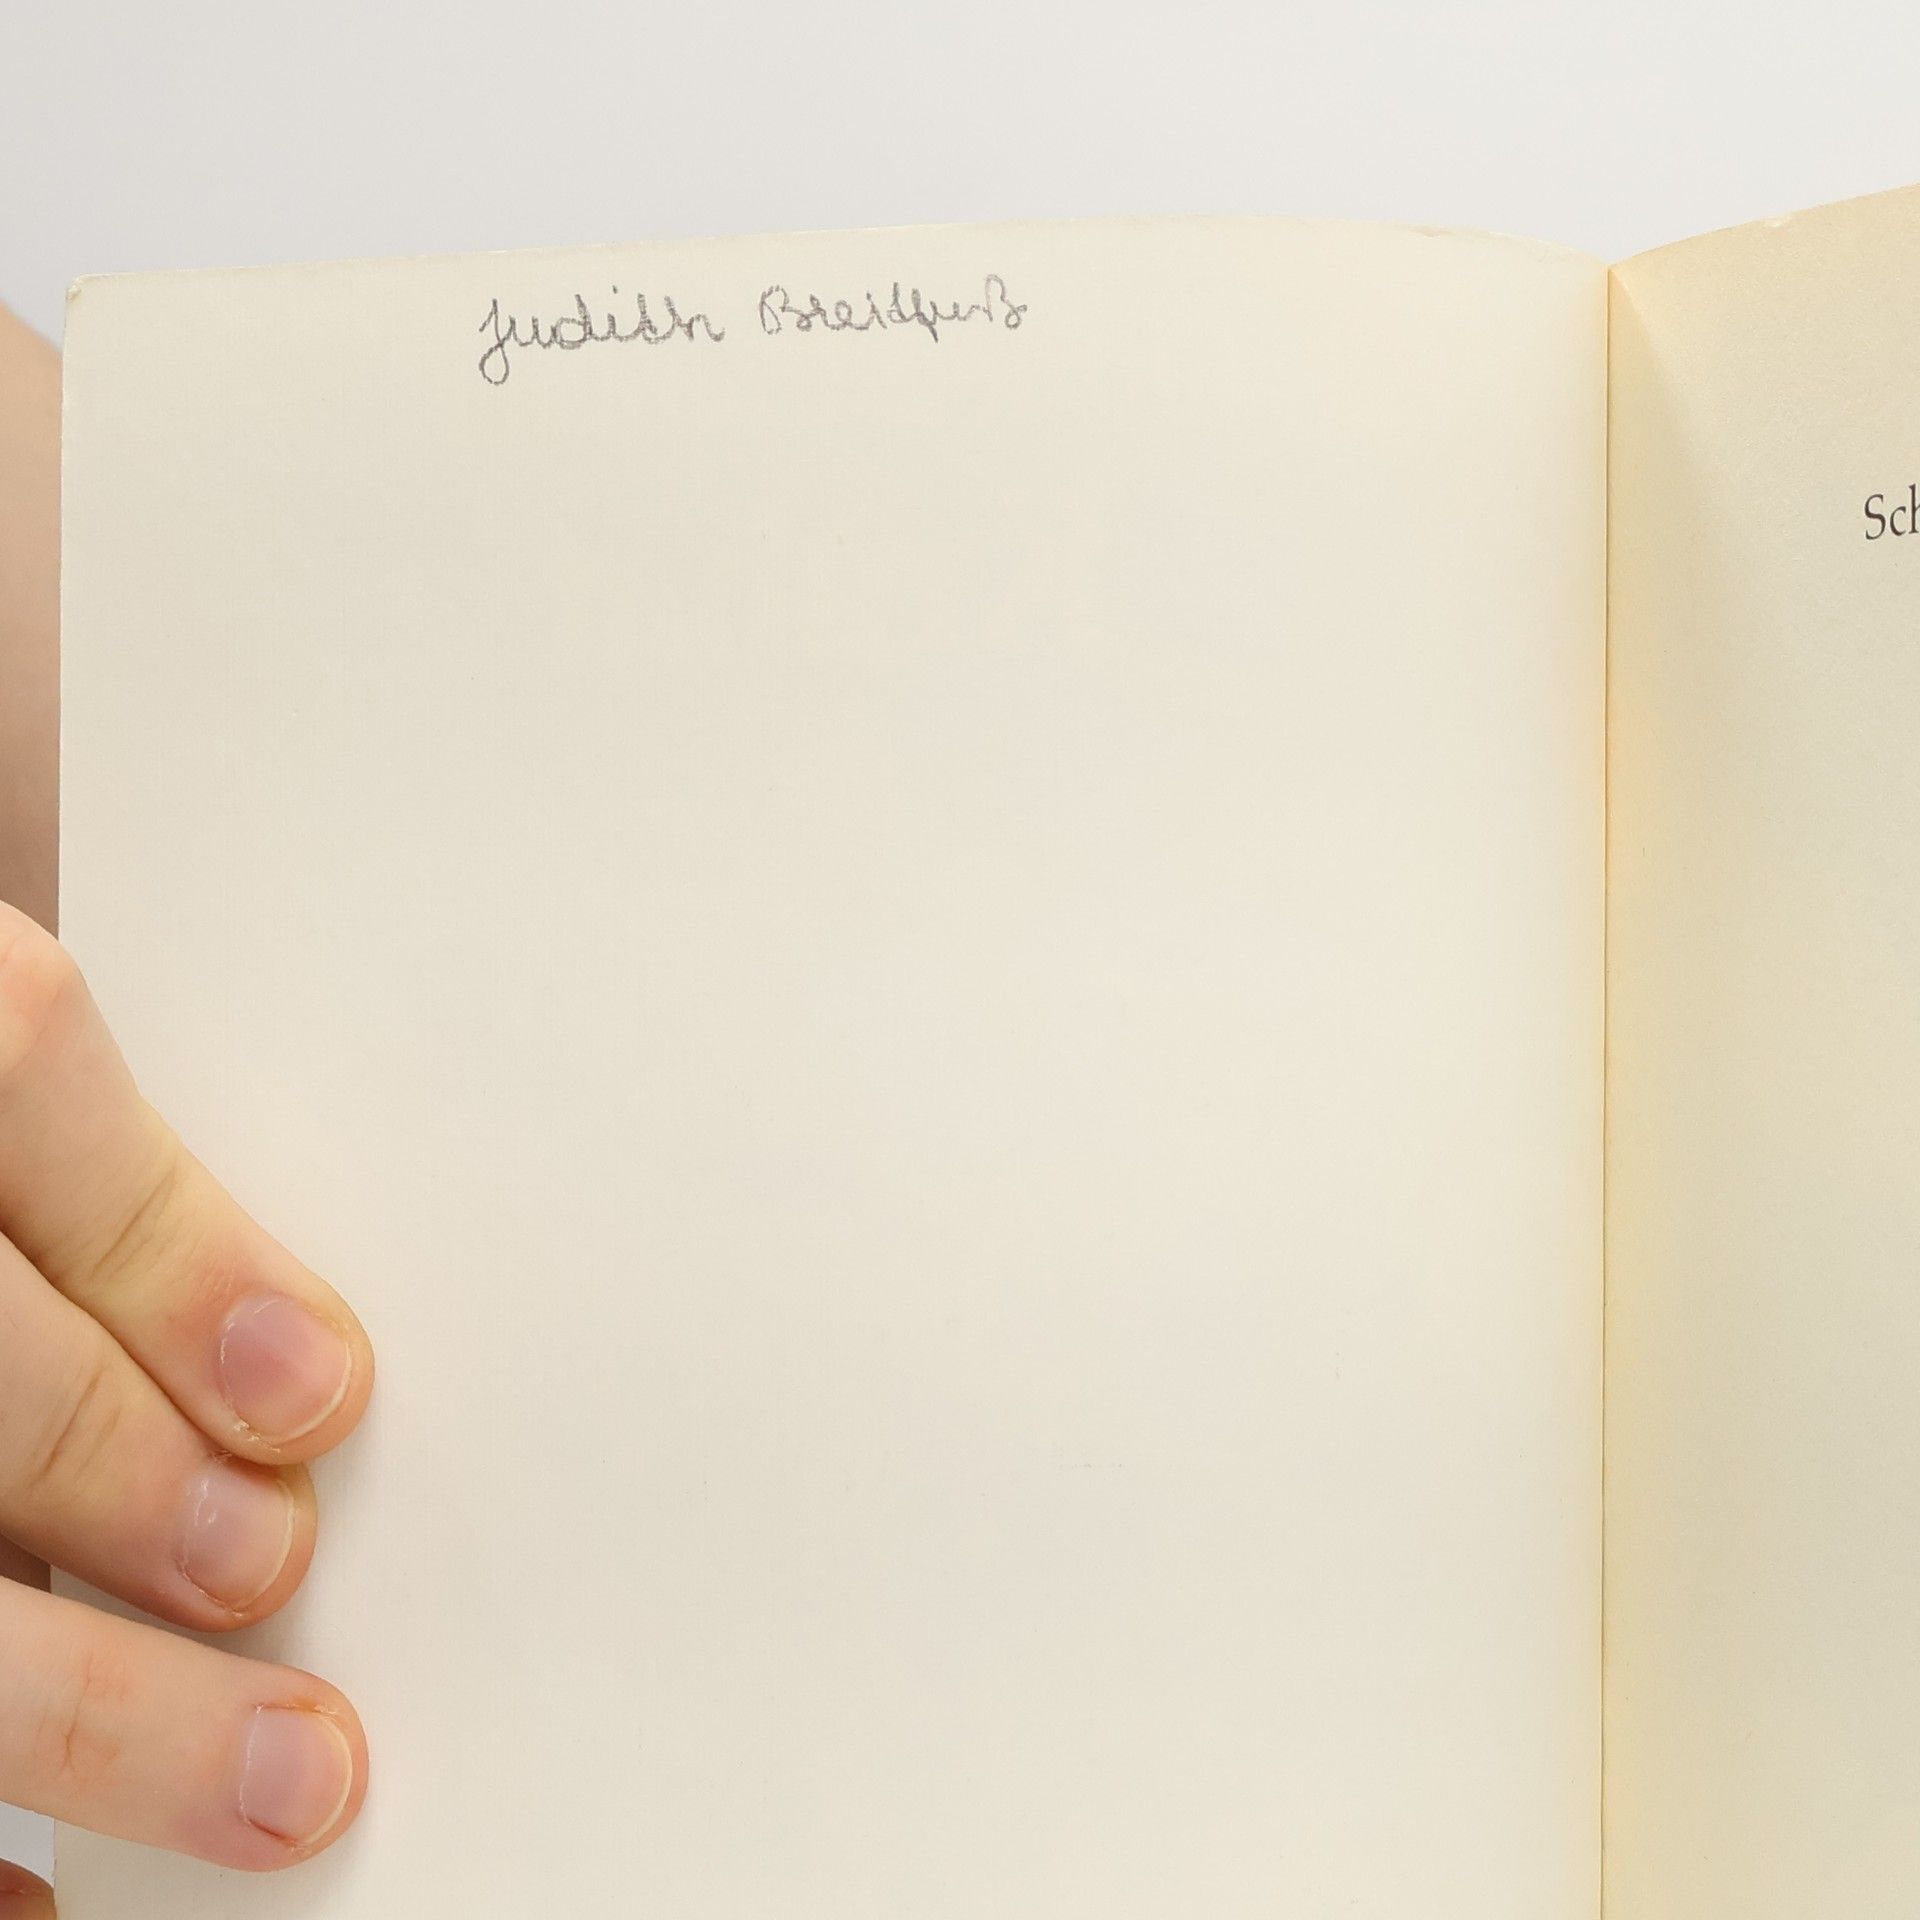 Judith Breitfuß
Sch